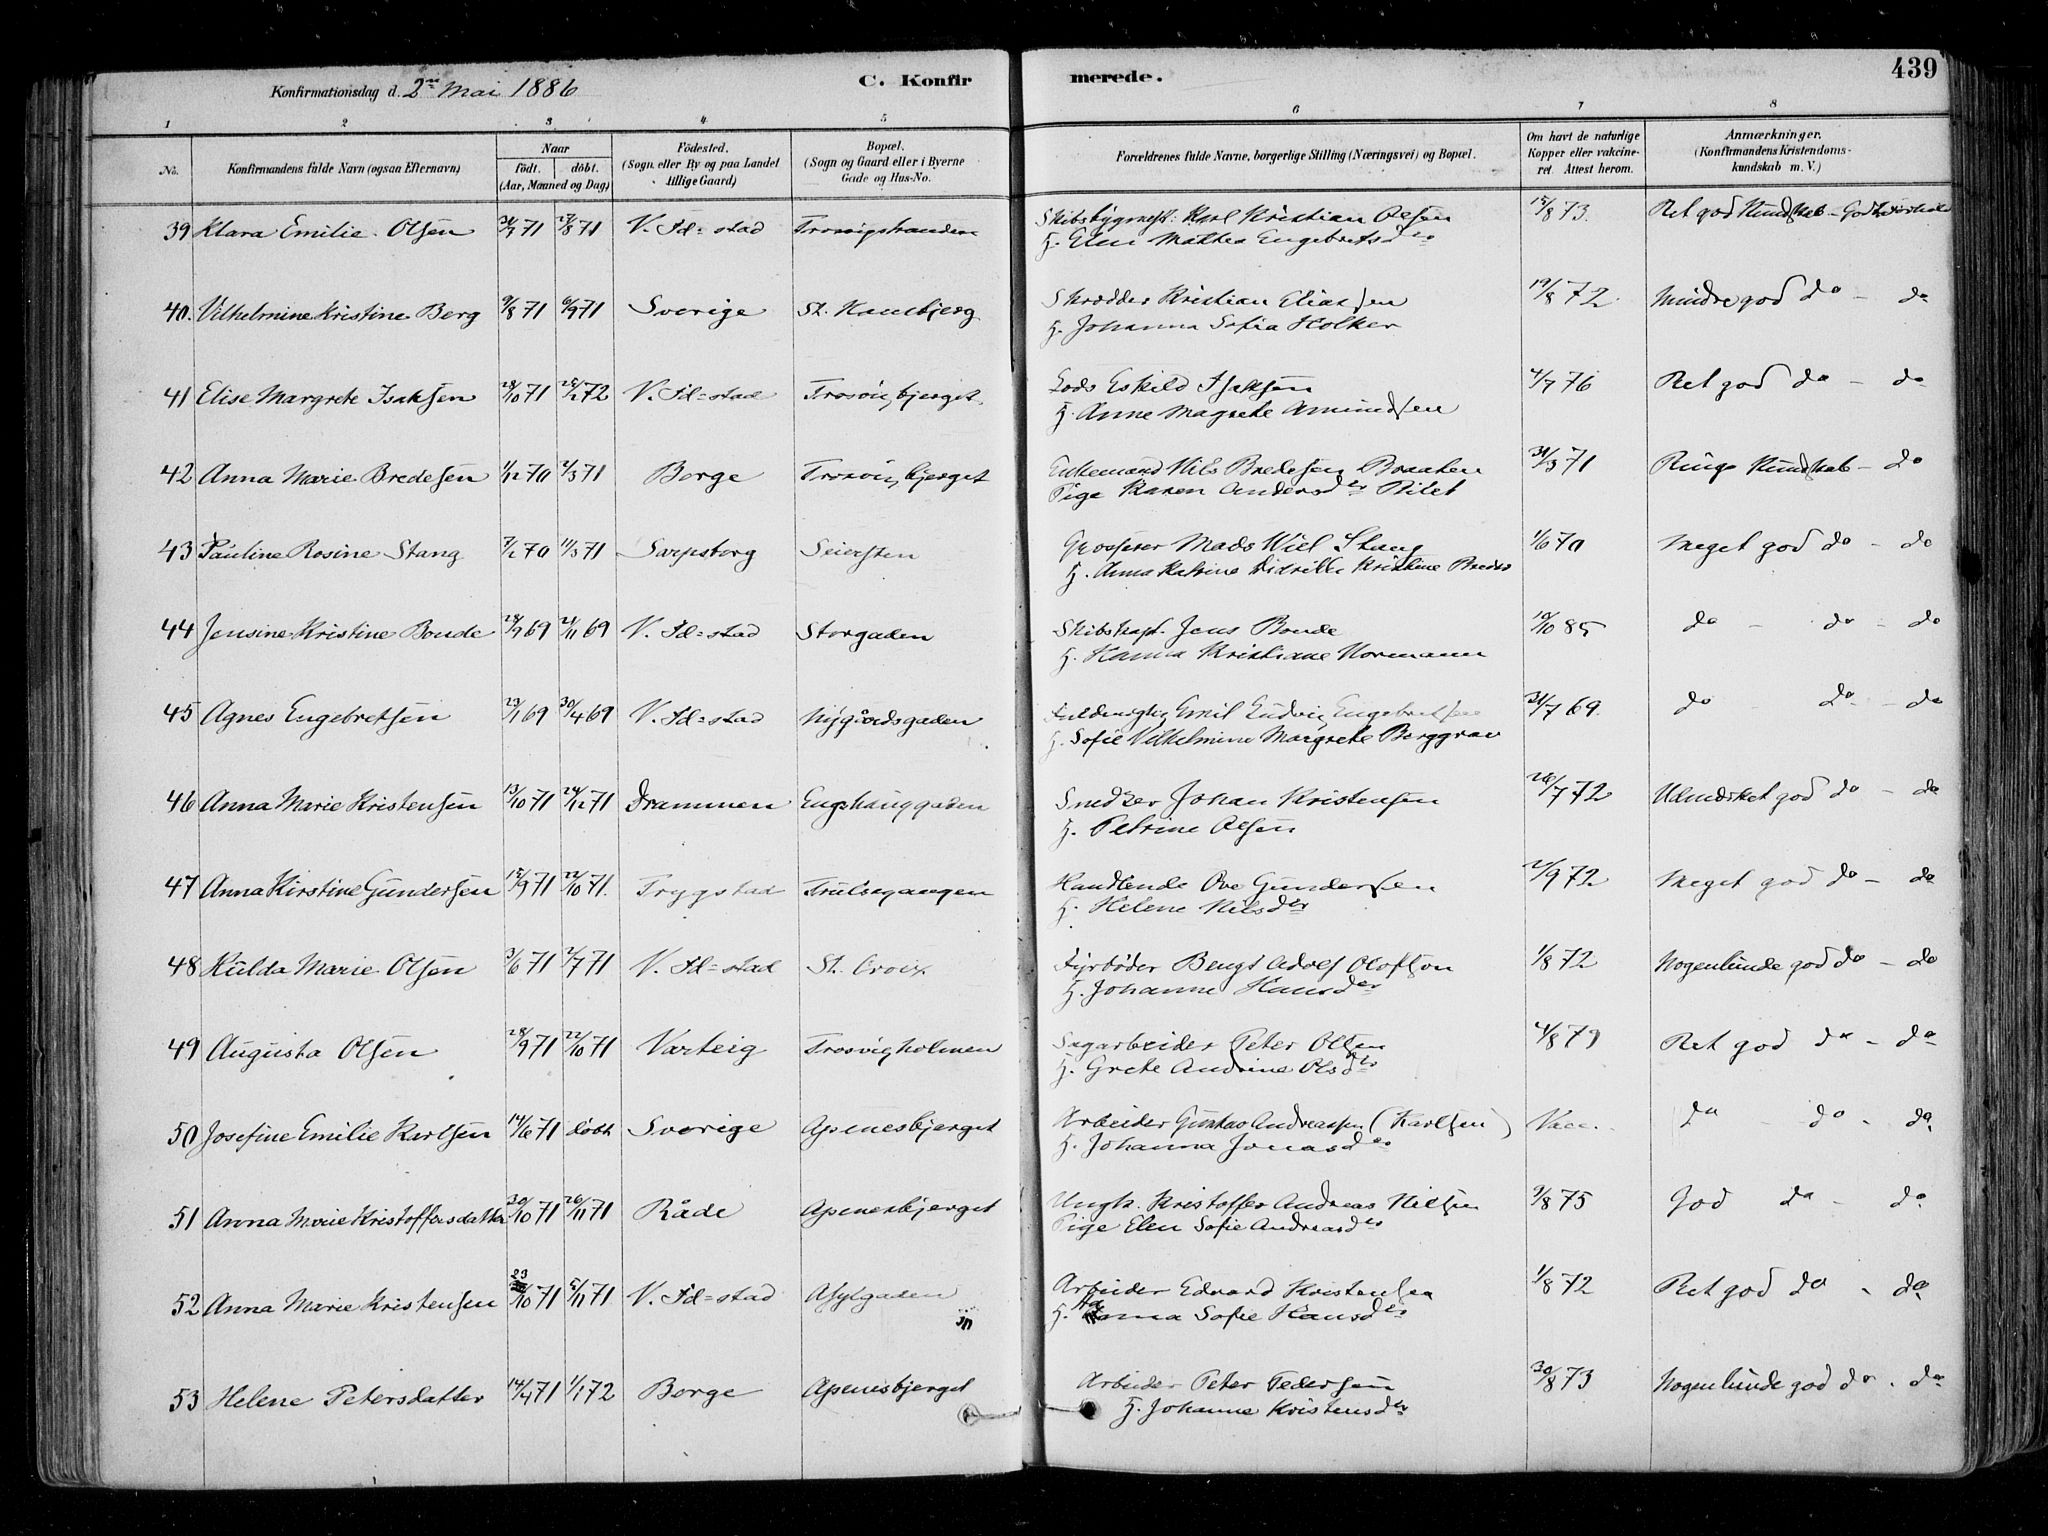 Konfirmationsdag d. 2en Mai 1886 C. Konfirmerede. 439
1 2 3 4 5 6 7 8
No. Konfirmandens fulde Navn (ogsaa Efternavn) Naar födt. döbt. (Aar, Maaned og Dag) Födested. (Sogn eller By og paa Landet tillige Gaard) Bopæl. (Sogn og Gaard eller i Byerne Gade og Hus-No. Forældrenes fulde Navne, borgerlige Stilling (Næringsvei) og Bopæl. Om havt de naturlige Kopper eller vakcineret. Attest herom. Anmærkninger. (Konfirmandens Kristendomskundskab m. V.)
39 Klara Emilie Olsen 71 27/8 71 V. Fd=stad Skibsbygmest: Karl Kristian Olsen 73. Ret god Kundskab -
H. Elen Mathea Engebretsder
40. Vilhelmine Kristine Berg 9/8 71 6/9 71 Sverige St. Hansbjerg Skrædder Kristian Eliassen 19/8 72. Mindre god do - do
H. Johanna Sofia Holker
41 Elise Margrete Isaksen 28/10 71 72 V. Fd=stad Lods Eskild Isaksen 4/7 76 Ret god do - do
H. Anne Magrete Amundsen
42 Anna Marie Bredesen 1/12 70 2/3 71 Borge Enkemand Nils Bredesen Braaten 31/3 71 Ringe Kundskab - do
Pige Karen Andersder
43 Pauline Rosine Stang 70 11/3 71 Sarpsborg Seiersten Grosserer Mads Wiel Stang 1/6 70 Meget god do - do
H. Anna Katrine Kristine
44 Jensine Kristine Bonde 69 21/11 69 V. Fd=stad Storgaden Skibskapt. Jens Bonde 10/10 85 do - do - do
H. Hanna Kristiane Normann
45 Agnes Engebretsen 23/1 69 30/4 69 V. Fd=stad Nygårdsgaden Emil Ludvig Engebretsen 31/7 69. do do - do
H. Sofie Vilhelmine Margrete Berggrav
46 Anna Marie Kristensen 13/10 71 24/12 71 Drammen Engehauggaden Snedker Johan Kristensen 26/7 72 Udmærket god do - do
H. Petrine Olsen
47 Anna Kirstine Gundersen 71 22/10 71. Trygstad Trulsegangen Handlende Ove Gundersen 2/9 72 Meget god do - do
H. Helene Nilsder
48 Hulda Marie Olsen 3/6 71 2/7 71 V. Fd=stad St. Croix Fyrbøder Bengt Adolf Olofson 1/8 72 Nogenlunde god do - do
H. Johanne Hansder
49 Augusta Olsen 28/9 71 22/10 71 Varteig Trosvigholmen Sagarbeider Peter Olsen 4/8 79 Ret god do - do
H. Grete Andrine Olsder
50 Josefine Emilie Karlsen 14/6 71 døbt Sverige Apenesbjerget Arbeider Gustav Andreassen (Karlsen) Vacc. do - do - do
H. Johanna Jonasder
51 Anna Marie Kristoffersdatter 30/10 71 26/11 71 Råde Apenesbjerget Ungk. Kristoffer Andreas Nilsen 9/8 75 God do - do
Pige Elen Sofie Andreasder
52 Anna Marie Kristensen 23/10 71 5/11 71 V. Fd=stad Asylgaden Arbeider Edvard Kristensen 1/8 72 Ret god do - do
H. Sofie Hansder
53 Helene Petersdatter 14/4 71 1/1 72 Borge Apenesbjerget Arbeider Peter Pedersen 30/8 73 Nogenlunde god do - do
H. Johanne Kristensder